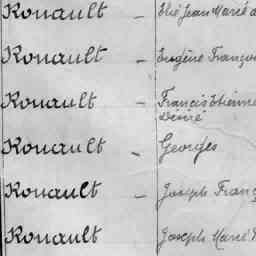 Rouault - Élie Jean Marie
Rouault - Eugène François
Rouault - Francis Etienne
Désiré
Rouault - Georges
Rouault - Joseph Franç
Rouault - Joseph Marie